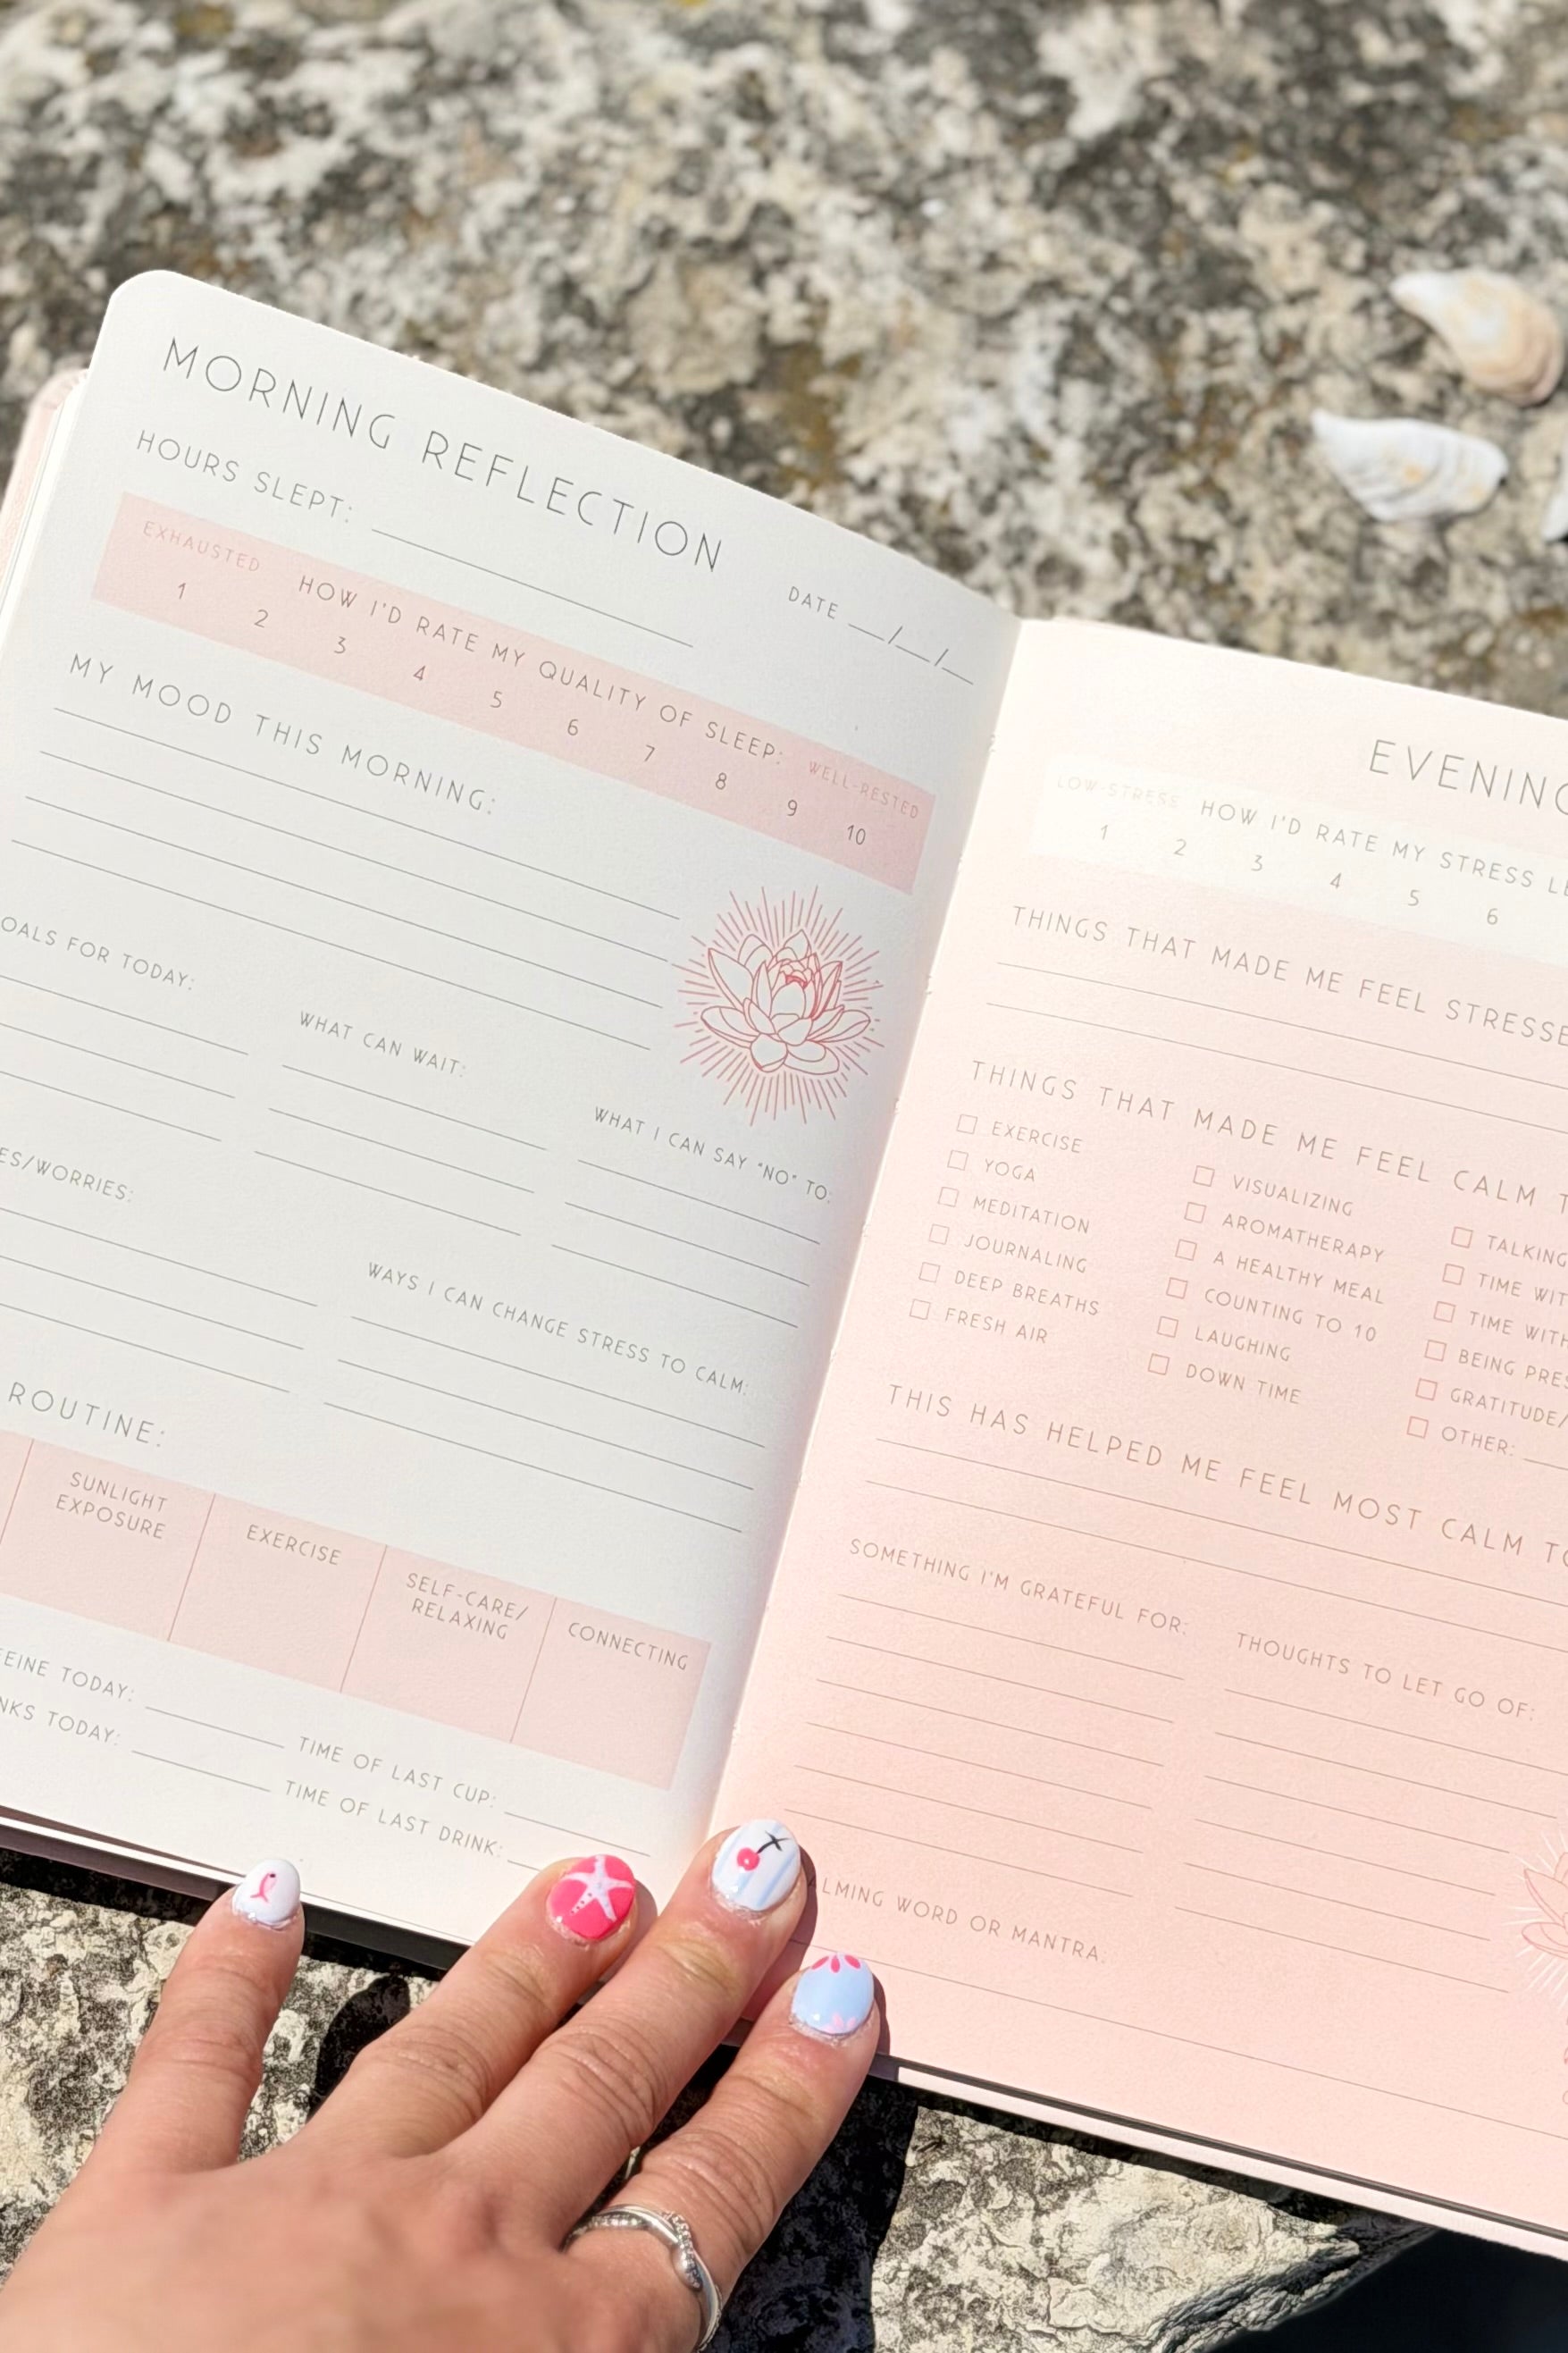 MORNING REFLECTION
HOURS SLEPT:
DATE __/__/__
EXHAUSTED HOW I'D RATE MY QUALITY OF SLEEP: WELL-RESTED
1 2 3 4 5 6 7 8 9 10
MY MOOD THIS MORNING:
OALS FOR TODAY:
WHAT CAN WAIT:
WHAT I CAN SAY "NO" TO:
ES/WORRIES:
WAYS I CAN CHANGE STRESS TO CALM:
ROUTINE:
SUNLIGHT
EXPOSURE
EXERCISE
SELF-CARE/
RELAXING
CONNECTING
FEINE TODAY:
TIME OF LAST CUP:
NKS TODAY:
TIME OF LAST DRINK:
EVENING
LOW-STRESS HOW I'D RATE MY STRESS LE
1 2 3 4 5 6
THINGS THAT MADE ME FEEL STRESSE
THINGS THAT MADE ME FEEL CALM T
EXERCISE
YOGA
MEDITATION
JOURNALING
DEEP BREATHS
FRESH AIR
VISUALIZING
AROMATHERAPY
A HEALTHY MEAL
COUNTING TO 10
LAUGHING
DOWN TIME
TALKING
TIME WIT
TIME WITH
BEING PRES
GRATITUDE/
OTHER:
THIS HAS HELPED ME FEEL MOST CALM TO
SOMETHING I'M GRATEFUL FOR:
THOUGHTS TO LET GO OF:
ALMING WORD OR MANTRA: